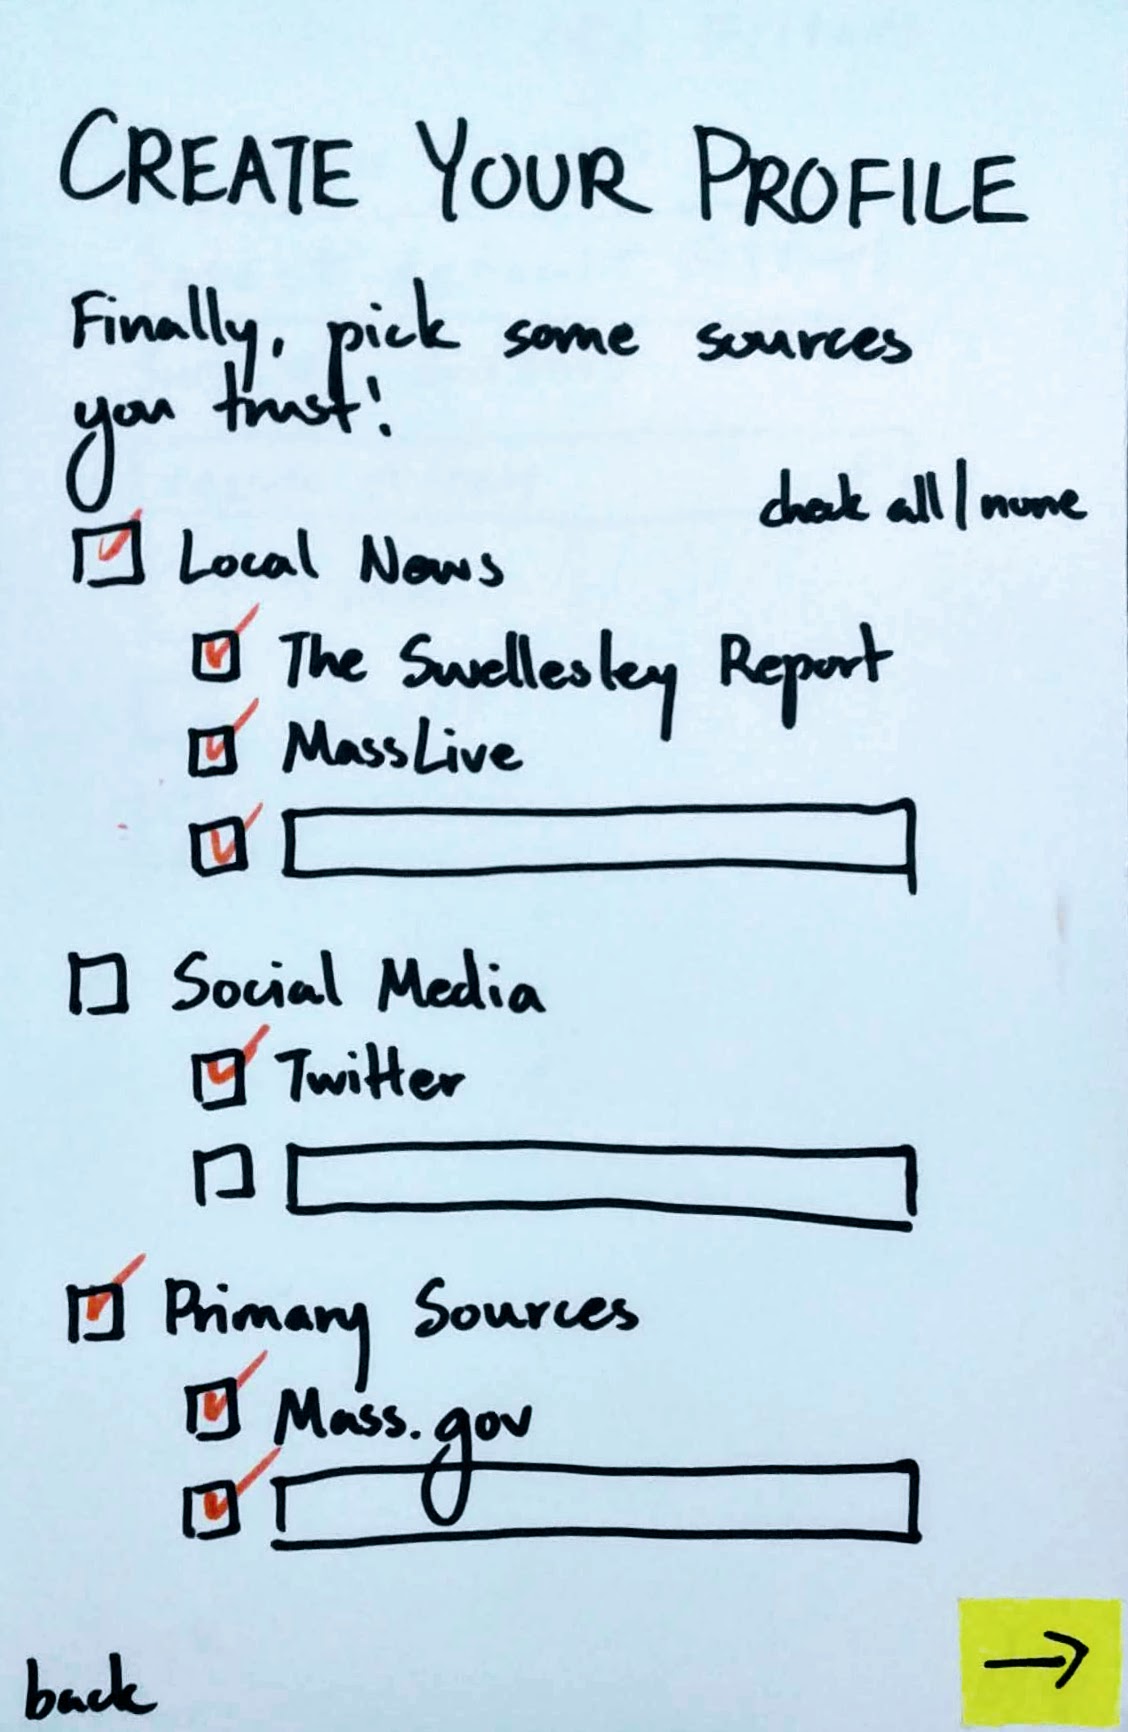 CREATE YOUR PROFILE
Finally, pick some sources
you trust!
check all/none
Local News
The Swellesley Report
MassLive
Social Media
Twitter
Primary Sources
Mass.gov
back